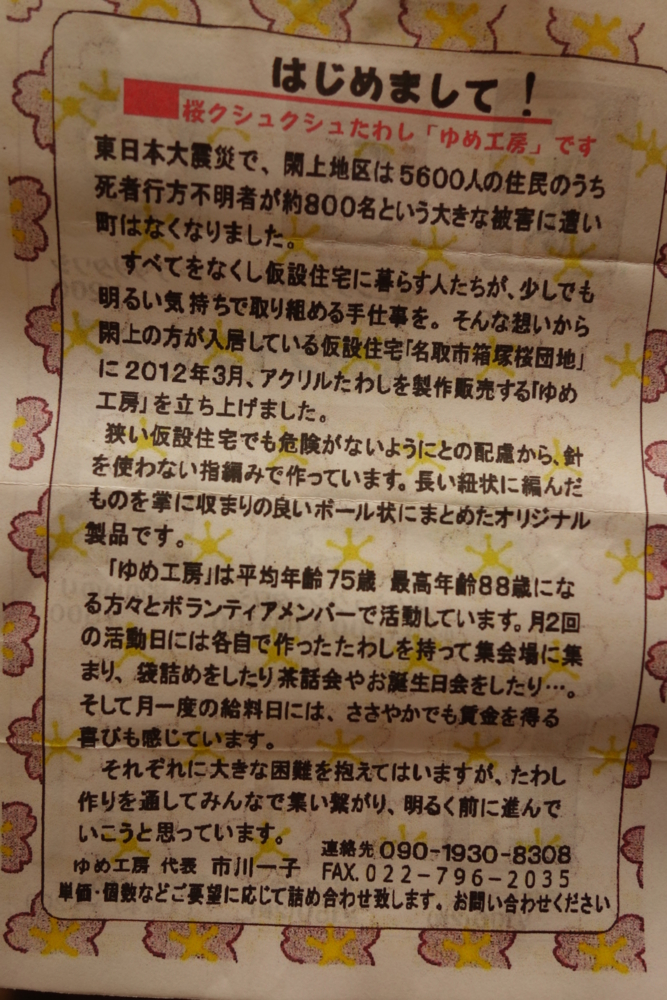 はじめまして！
桜クシュクシュたわし「ゆめ工房」です
東日本大震災で、閖上地区は5600人の住民のうち
死者行方不明者が約800名という大きな被害に遭い
町はなくなりました。
すべてをなくし仮設住宅に暮らす人たちが、少しでも
明るい気持ちで取り組める手仕事を。そんな想いから
閖上の方が入居している仮設住宅「名取市箱塚桜団地」
に2012年3月、アクリルたわしを製作販売する「ゆめ
工房」を立ち上げました。
狭い仮設住宅でも危険がないようにとの配慮から、針
を使わない指編みで作っています。長い紐状に編んだ
ものを掌に収まりの良いボール状にまとめたオリジナル
製品です。
「ゆめ工房」は平均年齢75歳 最高年齢88歳にな
る方々とボランティアメンバーで活動しています。月2回
の活動日には各自で作ったたわしを持って集会場に集
まり、袋詰めをしたり茶話会やお誕生日会をしたり…。
そして月一度の給料日には、ささやかでも賃金を得る
喜びも感じています。
それぞれに大きな困難を抱えてはいますが、たわし
作りを通してみんなで集い繋がり、明るく前に進んで
いこうと思っています。
連絡先 090-1930-8308
ゆめ工房 代表 市川一子 FAX.022-796-2035
単価・個数などご要望に応じて詰め合わせ致します。お問い合わせください